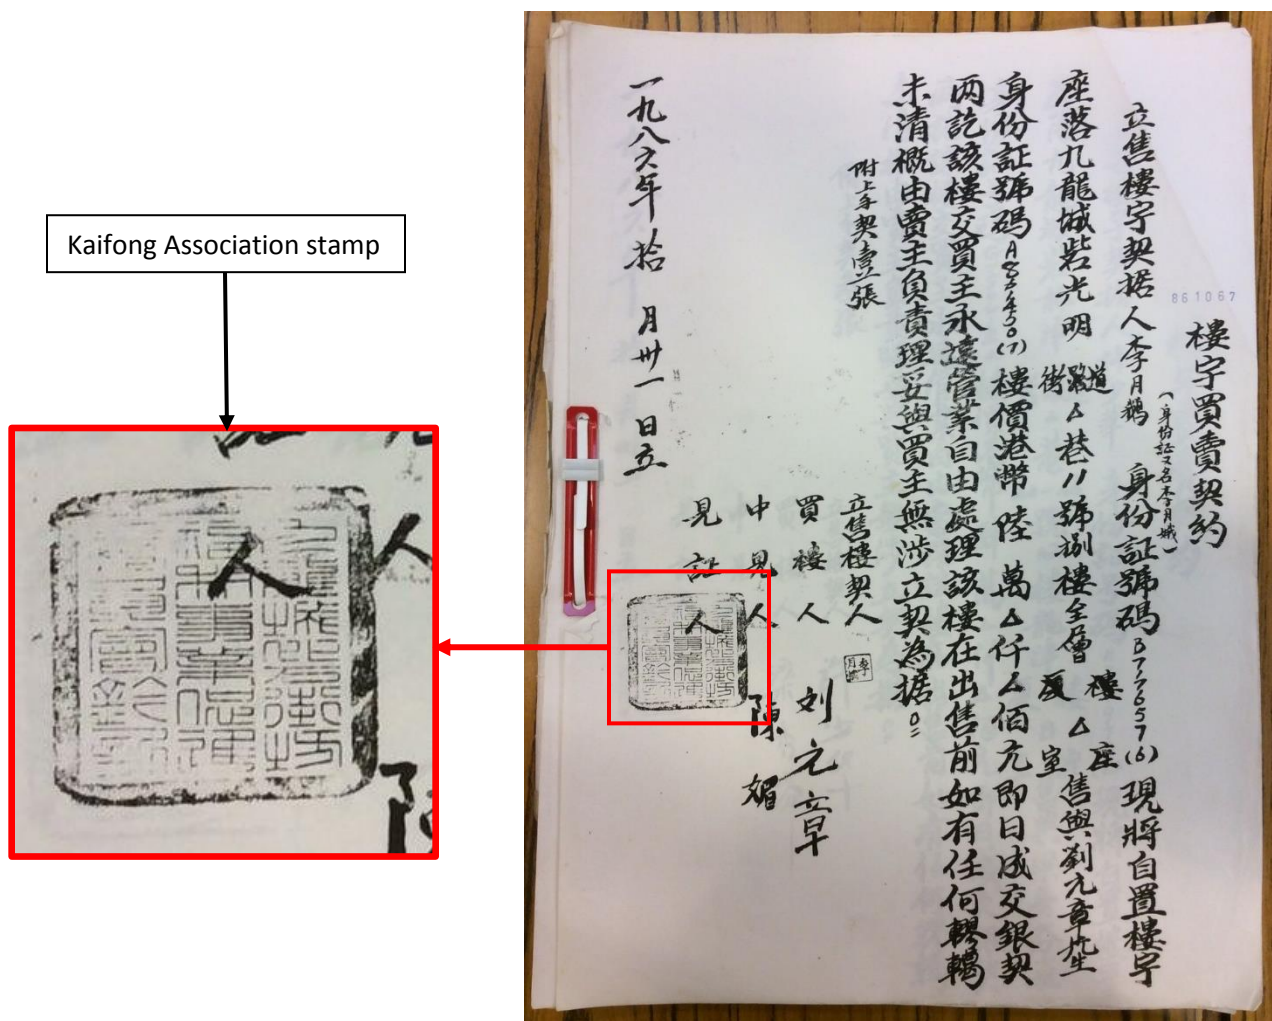 Kaifong Association stamp
861067
樓宇買賣契約
立售樓宇契据人李月鵝 身份証號碼B777657(6)現將自置樓宇
(身份証又名李月娥)
座落九龍城砦光明 街路道 △巷11號捌樓全層 樓 △ 座 厦 室 售與劉元章先生
身份証號碼A885450(7)樓價港幣 陸 萬 △ 仟 △ 佰元即日成交銀契
两訖該樓交買主永遠管業自由處理該樓在出售前如有任何轇轕
未清概由賣主負責理妥與買主無涉立契為据。
附上手契壹張
立售樓契人
買樓人 刘元章
中見人 陳媚
見証人
一九八六年 拾 月 卅一 日立